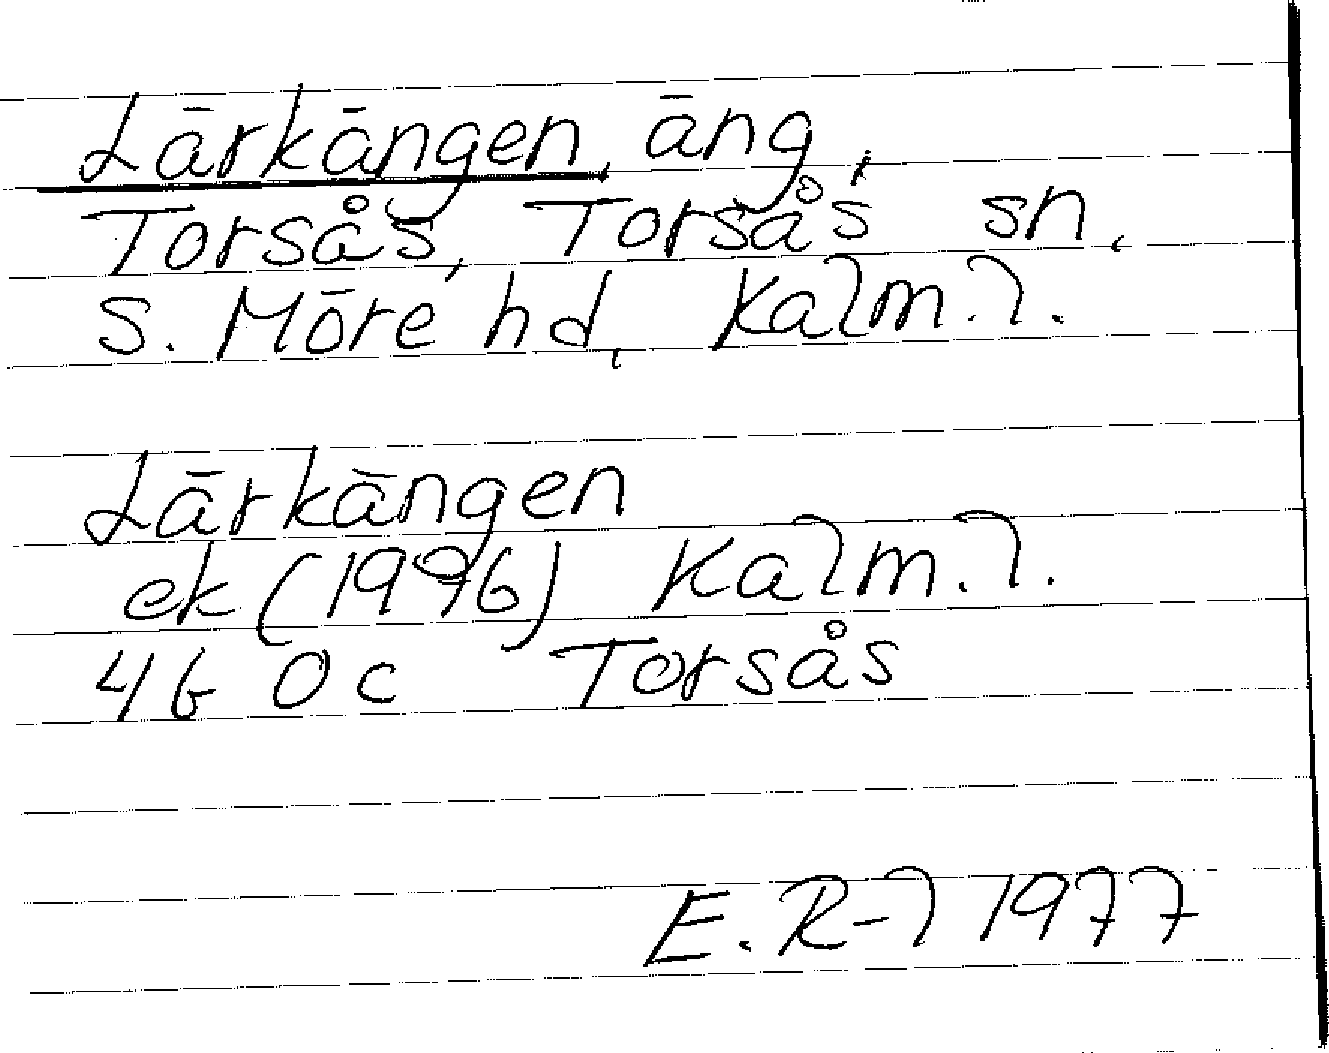 Lärkängen, äng,
Torsås, Torsås sn,
S. Möre hd, Kalm. l.
Lärkängen
ek (1996) Kalm. l.
4G 0c Torsås
E. R-l 1977